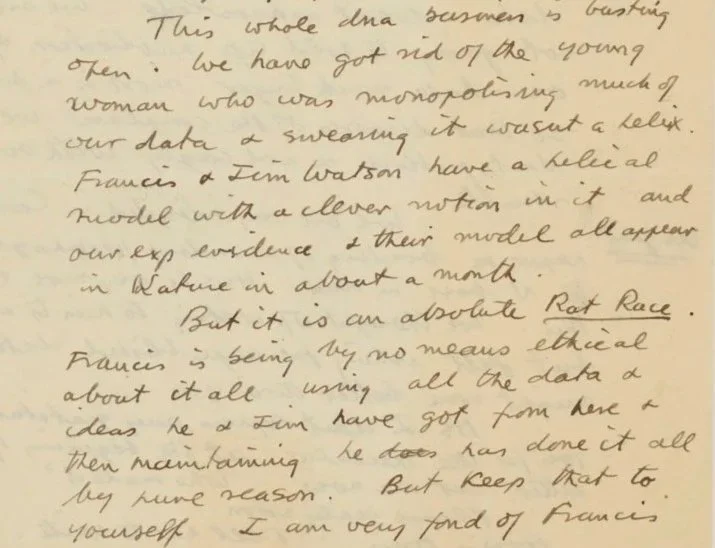 This whole dna business is busting
open. We have got rid of the young
woman who was monopolising much of
our data & swearing it wasnt a helix.
Francis & Jim Watson have a helical
model with a clever notion in it and
our exp evidence & their model all appear
in Nature in about a month.
But it is an absolute Rat Race.
Francis is being by no means ethical
about it all using all the data &
ideas he & Jim have got from here &
then maintaining he does has done it all
by pure reason. But keep that to
yourself I am very fond of Francis